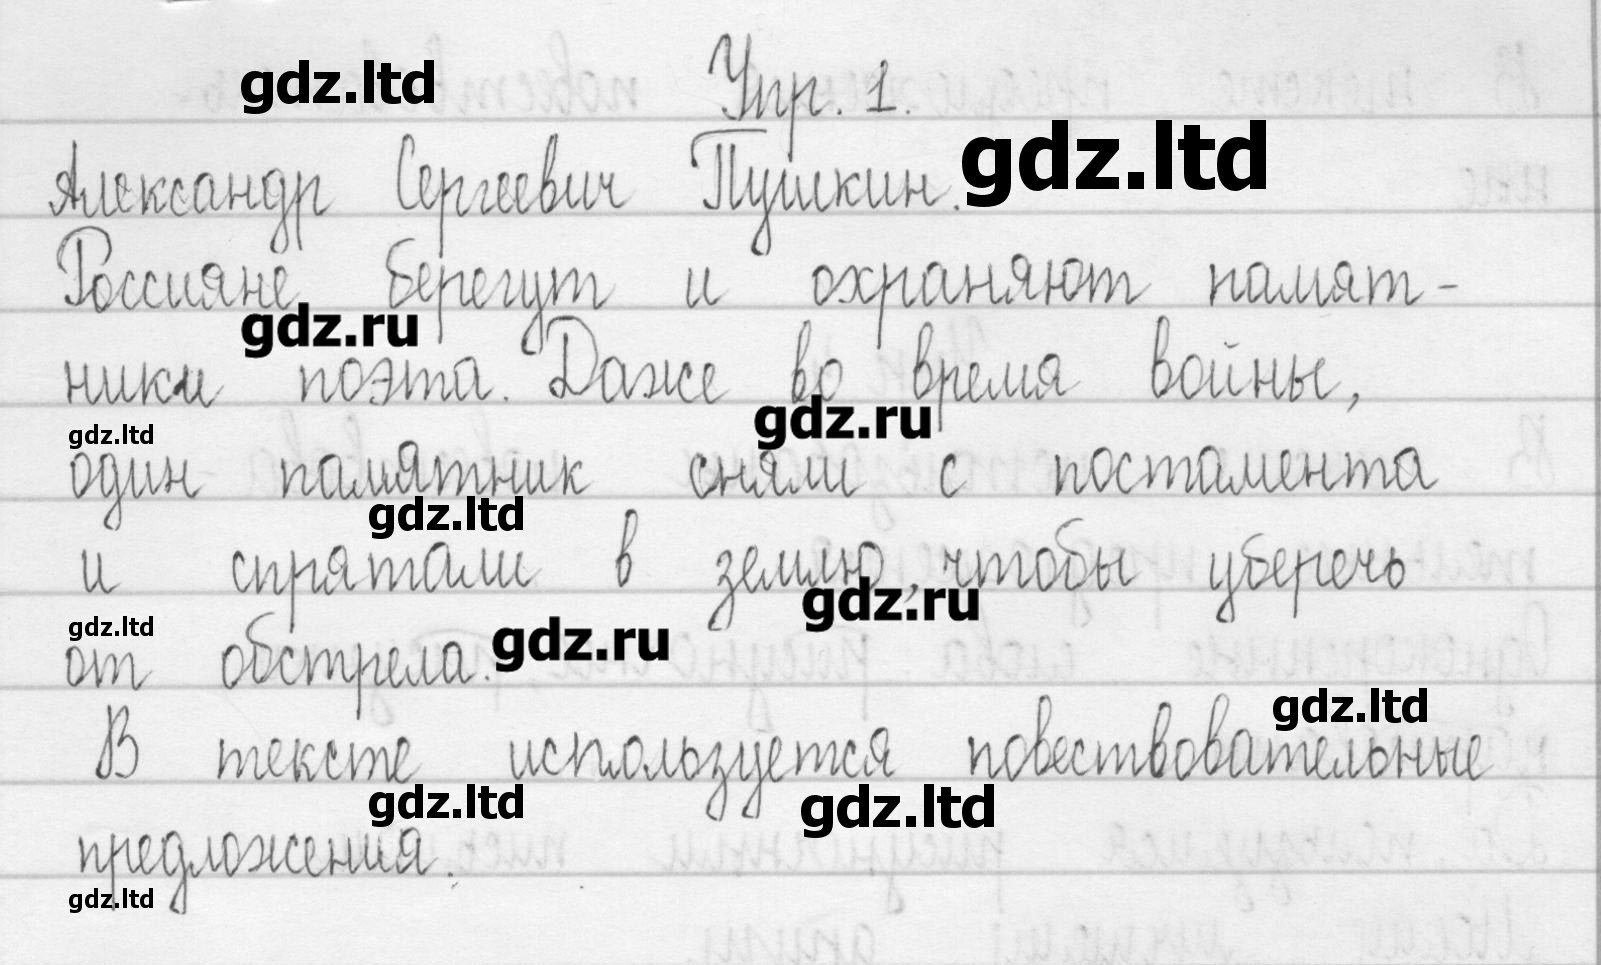 gdz.ltd Упр. 1.
Александр Сергеевич Пушкин. gdz.ltd
Россияне берегут и охраняют памят-
gdz.ru
ники поэта. Даже во время войны,
gdz.ltd gdz.ru
один памятник сняли с постамента
gdz.ltd
и спрятали в землю, чтобы уберечь
gdz.ru
gdz.ltd
от обстрела. gdz.ru
gdz.ltd
В тексте используется повествовательные
gdz.ltd gdz.ltd
предложения.
gdz.ltd